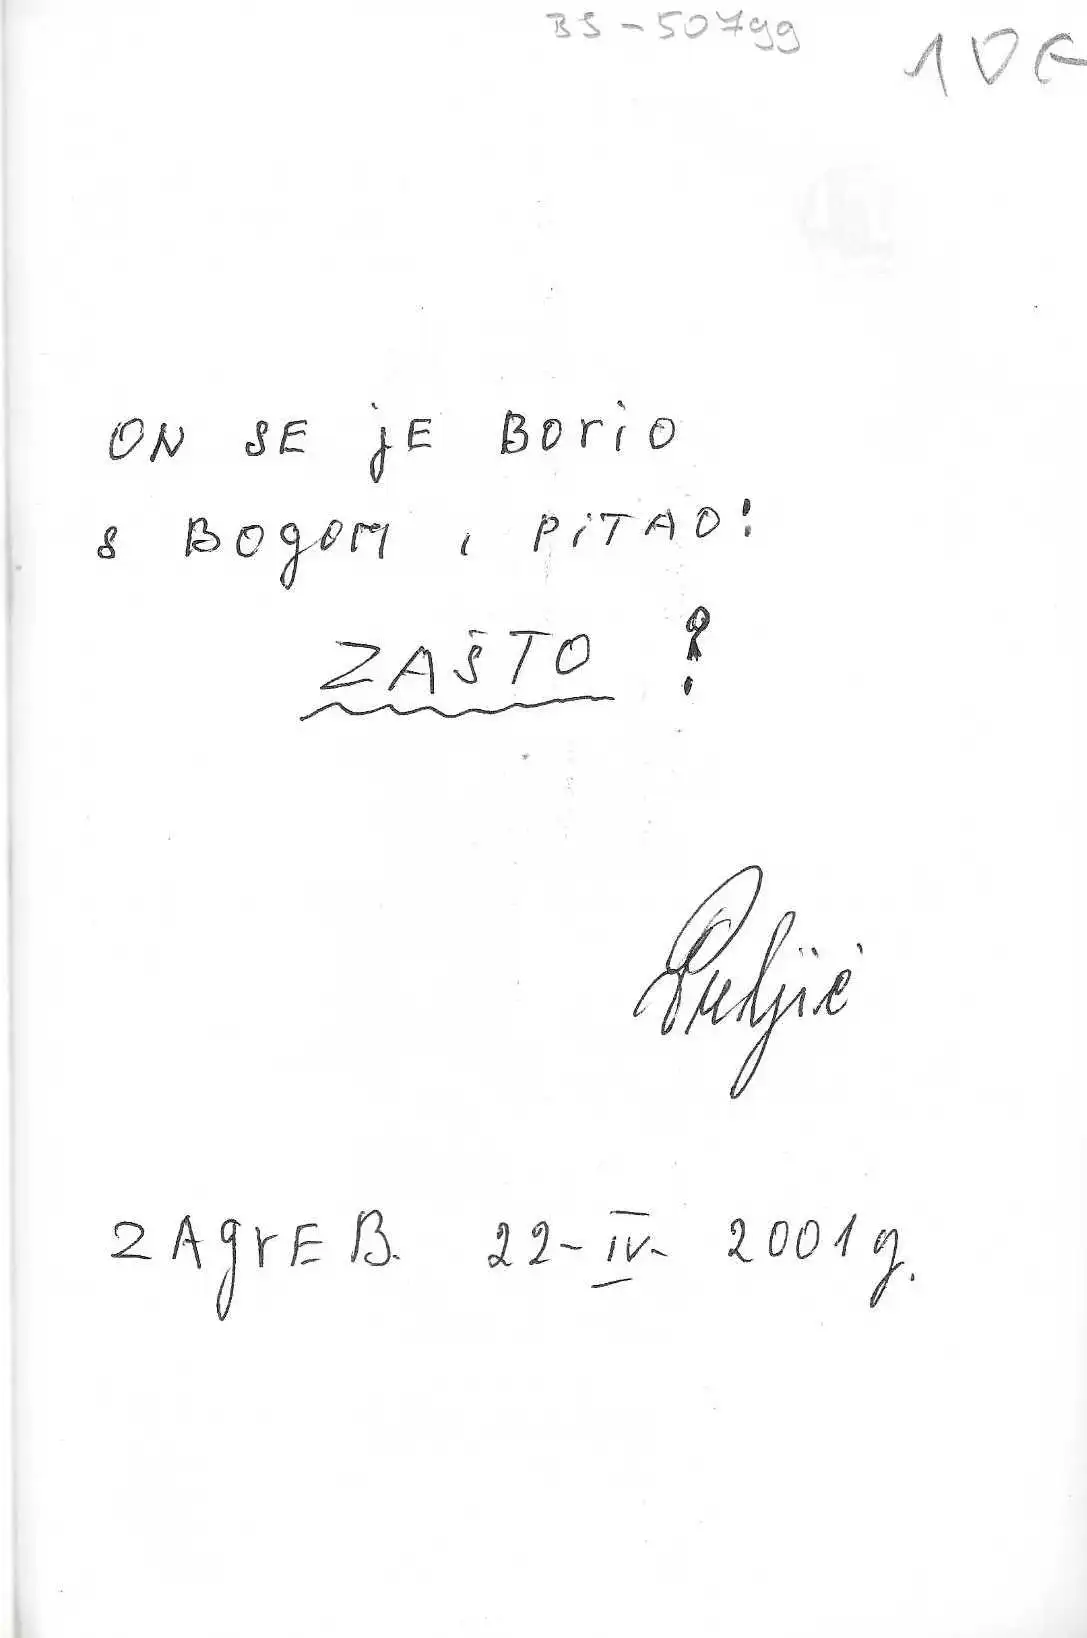 BS-50799
10€
ON SE jE BOriO
s BOgOM i PiTAO:
ZAŠTO ?
ZAgrEB. 22-IV- 2001g.